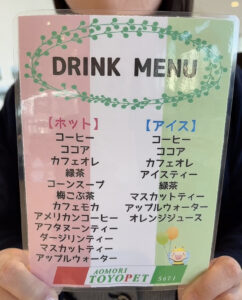 DRINK MENU
【ホット】
コーヒー
ココア
カフェオレ
緑茶
コーンスープ
梅こぶ茶
カフェモカ
アメリカンコーヒー
アフタヌーンティー
ダージリンティー
マスカットティー
アップルウォーター
【アイス】
コーヒー
ココア
カフェオレ
アイスティー
緑茶
マスカットティー
アップルウォーター
オレンジジュース
AOMORI
TOYOPET